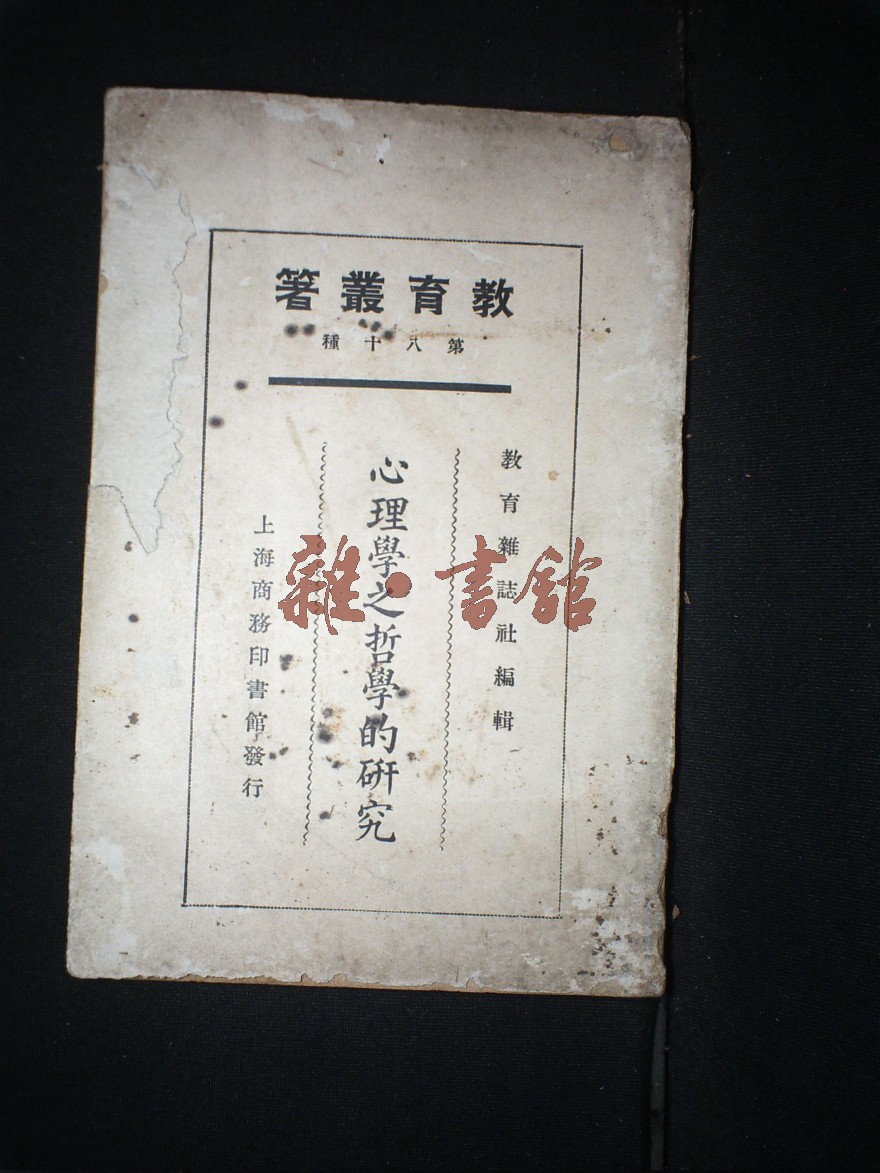 教育叢著
第八十種
教育雜誌社編輯
心理學之哲學的研究
上海商務印書館發行
雜·書館